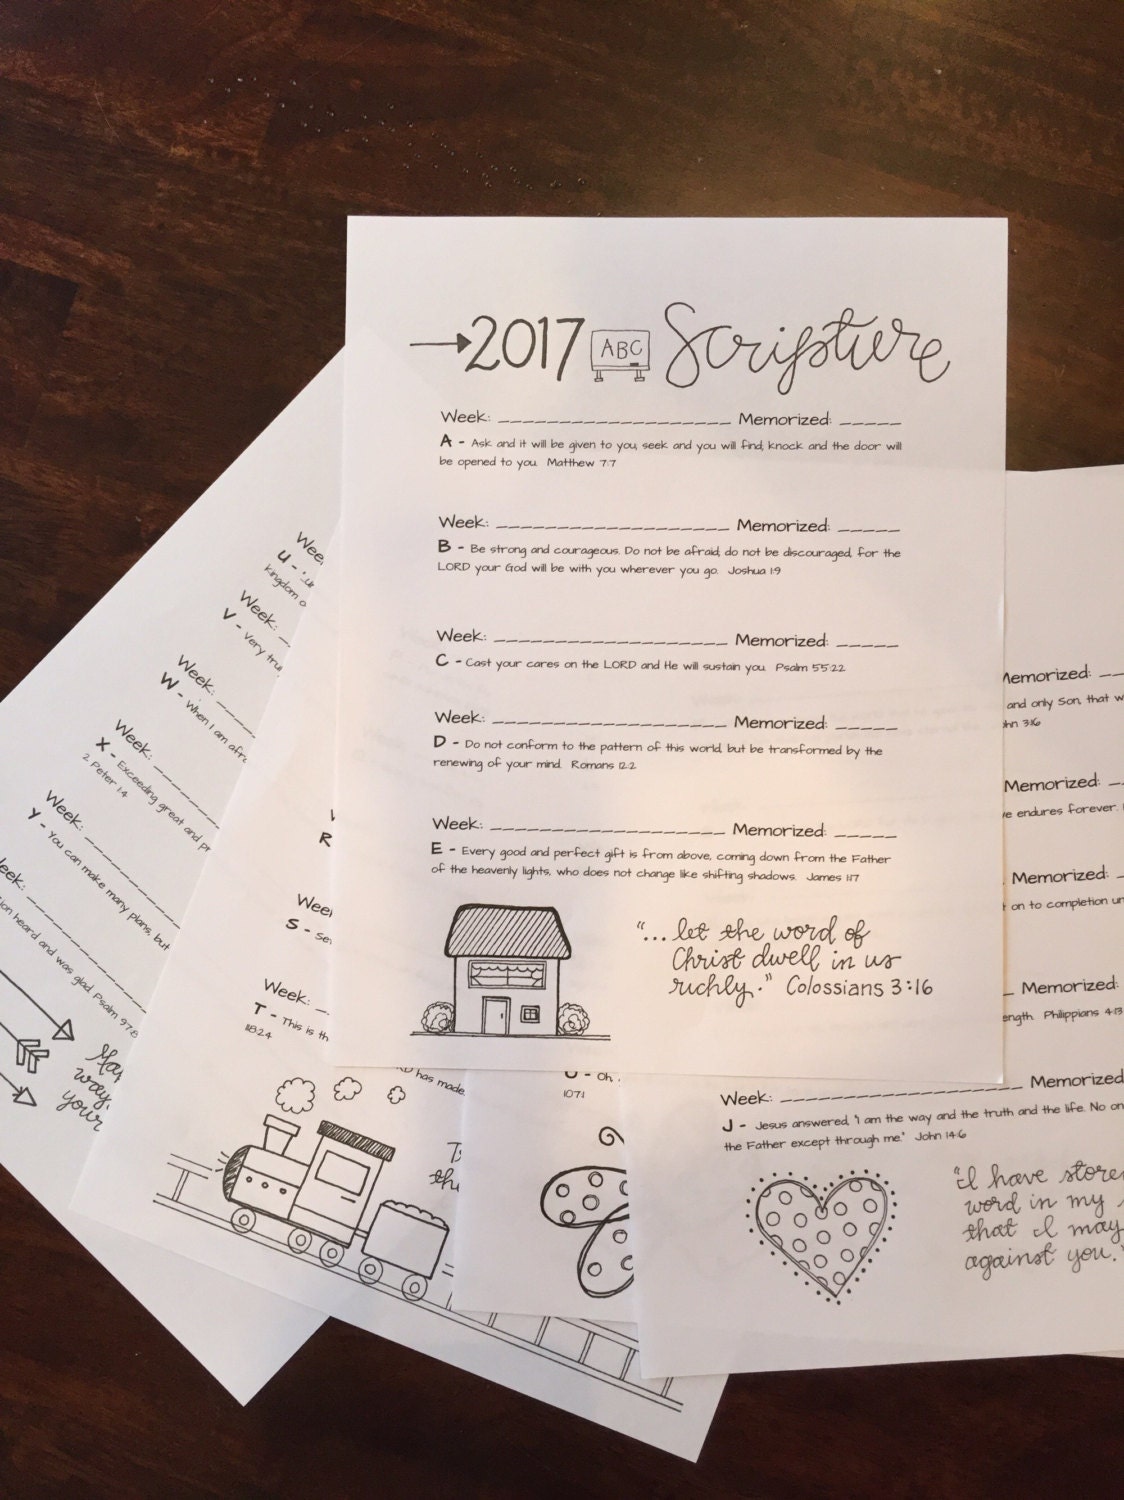 2017 ABC Scripture
Week: ____________________ Memorized: _____
A - Ask and it will be given to you, seek and you will find, knock and the door will
be opened to you. Matthew 7:7
Week: ____________________ Memorized: _____
B - Be strong and courageous. Do not be afraid, do not be discouraged, for the
LORD your God will be with you wherever you go. Joshua 1:9
Week: ____________________ Memorized: _____
C - Cast your cares on the LORD and He will sustain you. Psalm 55:22
Week: ____________________ Memorized: _____
D - Do not conform to the pattern of this world, but be transformed by the
renewing of your mind. Romans 12:2
Week: ____________________ Memorized: _____
E - Every good and perfect gift is from above, coming down from the Father
of the heavenly lights, who does not change like shifting shadows. James 1:17
"... let the word of
Christ dwell in us
richly." Colossians 3:16
U -
kingdom
Week:
V - Very
Week:
W - When I am
Week:
X - Exceeding great and
2 Peter 1:4
Week:
Y - You can make many plans, but
heard and was glad. Psalm 97:8
way.
your
R
S -
Week:
T - This is
118:24
has made
O - Oh,
107:1
Memorized:
and only Son, that
3:16
Memorized:
endures forever.
Memorized:
on to completion
Memorized:
Philippians 4:13
Week: ____________________ Memorized
J - Jesus answered, "I am the way and the truth and the life. No
the Father except through me." John 14:6
"I have
word in my
that I may
against you."